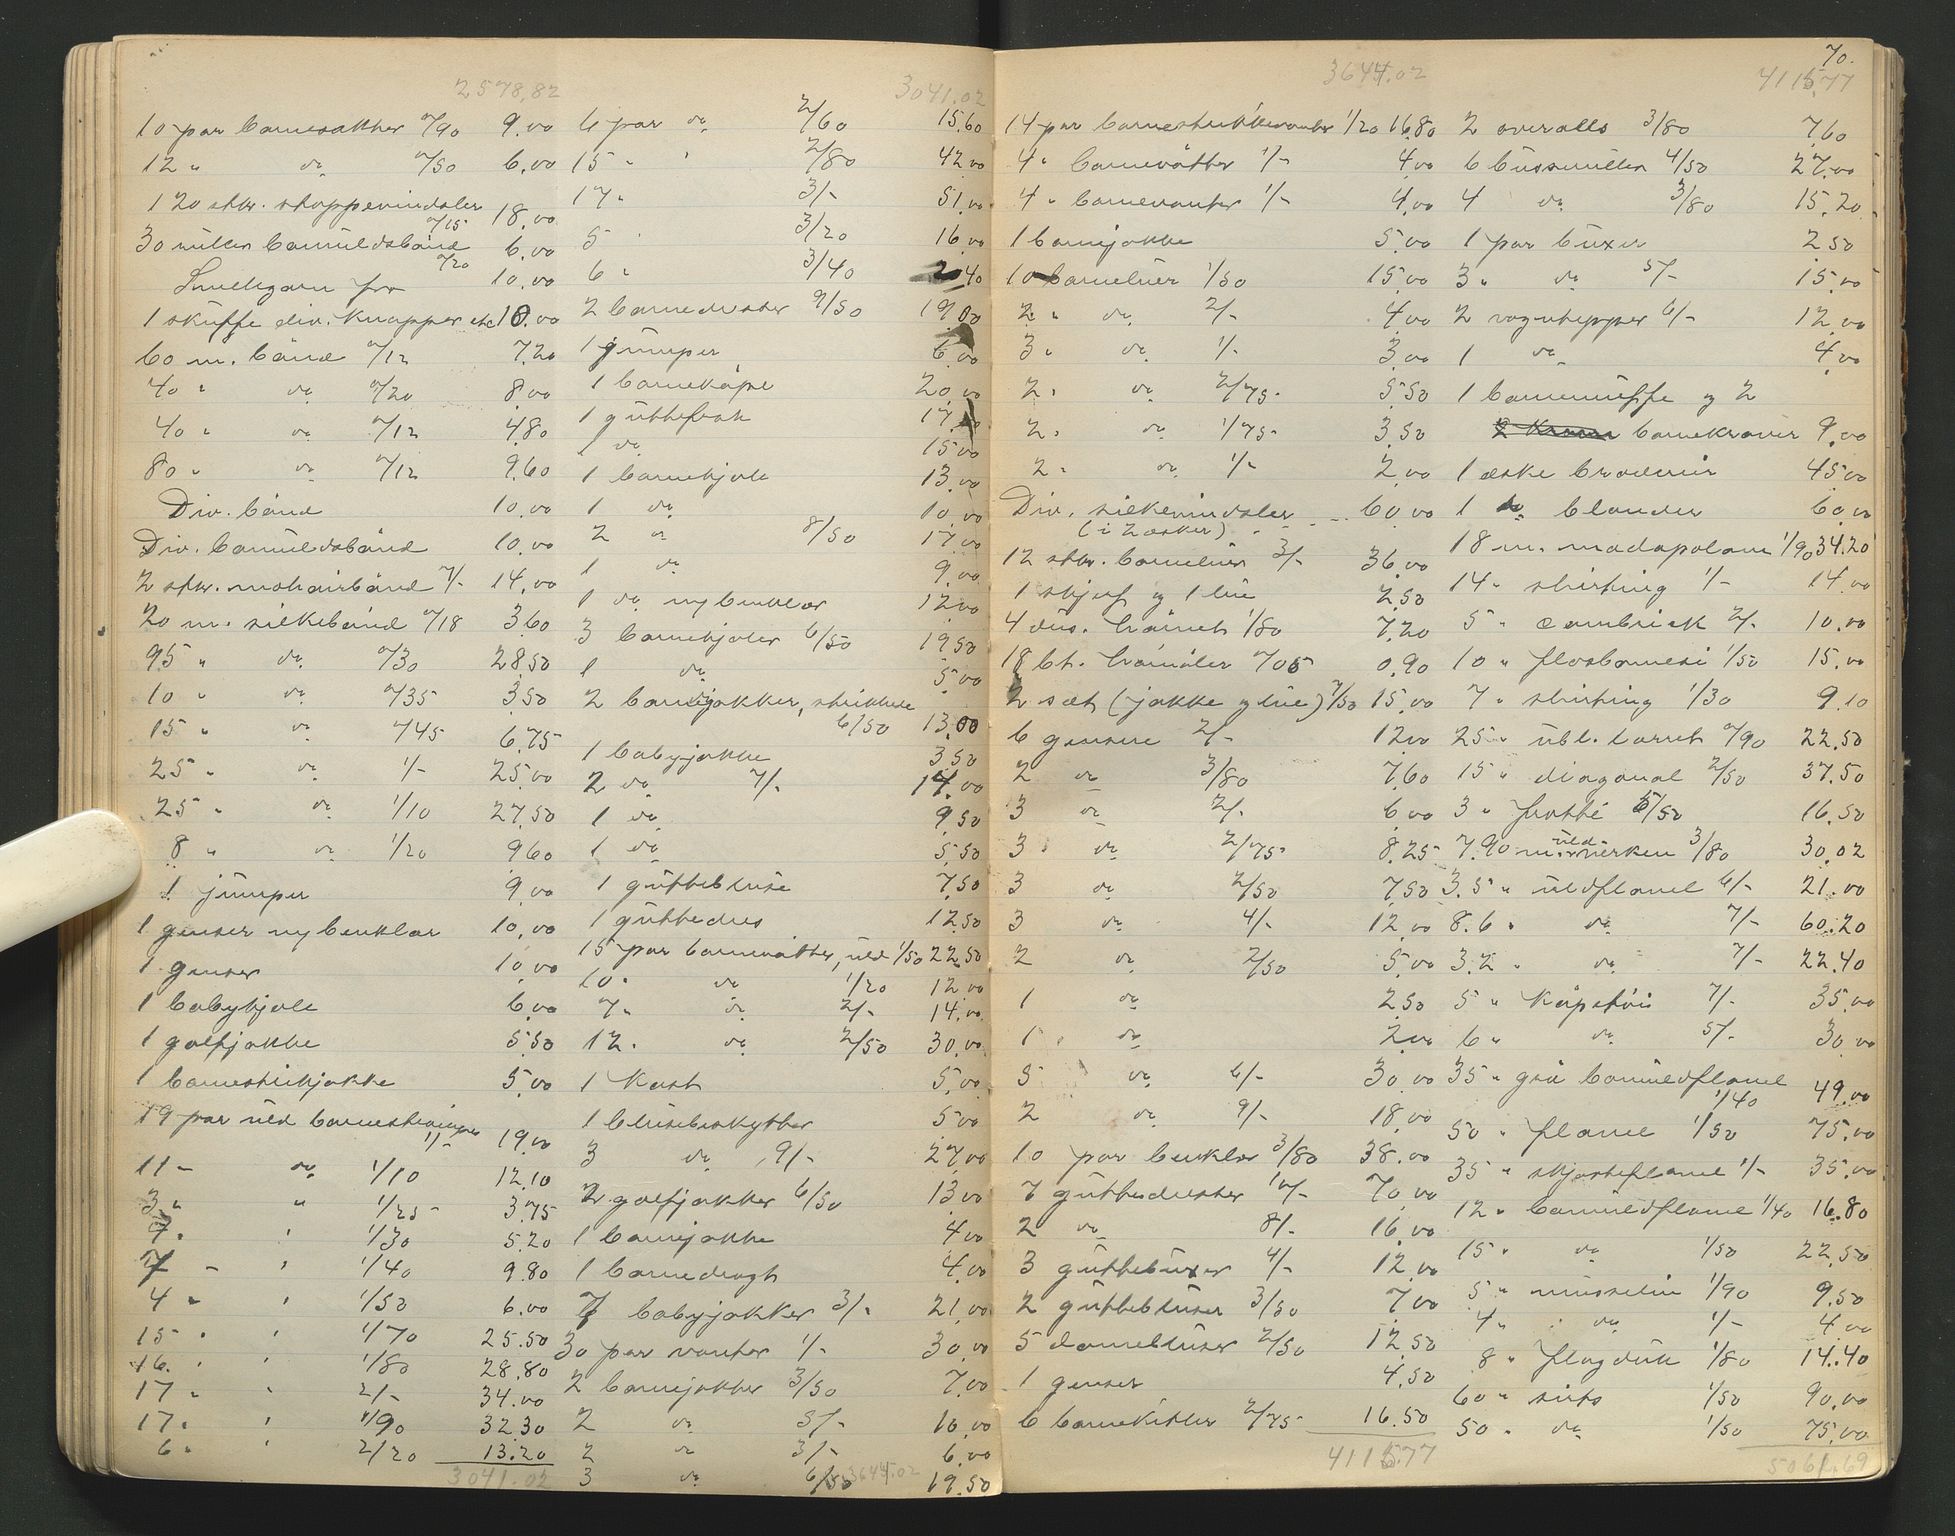 2578,82
10 par barnesokker 0/90 9.00
12 " do 0/50 6.00
120 stkr. stoppevindsler 0/15 18.00
30 nuller bomuldsbånd 0/20 6.00
10.00
1 skuffe div. knapper etc 10.00
60 m. bånd 0/12 7.20
40 " do 0/20 8.00
40 " do 0/12 4.80
80 " do 0/12 9.60
Div. bånd 10.00
Div. bomuldsbånd 10.00
2 stkr. mohairbånd 7/- 14.00
20 m. silkebånd 0/18 3.60
95 " do 0/30 28.50
10 " do 0/35 3.50
15 " do 0/45 6.75
25 " do 1/- 25.00
25 " do 1/10 27.50
8 " do 1/20 9.60
1 jumper 9.00
1 genser m/benklær 10.00
1 genser 10.00
1 babykjole 6.00
1 golfjakke 5.50
1 barnestrikjakke 5.00
19 par uld barnestrømper 1/- 19.00
11 - do 1/10 12.10
3 " " 1/25 3.75
1/30 5.20
7 - " 1/40 9.80
4 " " 1/50 6.00
15 " " 1/70 25.50
16 " " 1/80 28.80
17 " " 2/- 34.00
17 " " 1/90 32.30
6 " " 2/20 13.20
3041.02
3041.02
6 par do 2/60 15.60
15 " " 2/80 42.00
17 " 3/- 51.00
5 " 3/20 16.00
6 " 3/40 20.40
2 barnedrester 9/50 19.00
1 jumper 6.00
1 barnekåpe 20.00
1 guttefrak 17.00
1 do 15.00
1 barnekjole 13.00
1 do 10.00
2 do 8/50 17.00
1 do 9.00
1 do m/benklær 12.00
3 barnekjoler 6/50 19.50
1 do 5.00
2 barnejakker, strikkede
6/50 13.00
1 babyjakke 3.50
2 do 7/- 14.00
1 do 9.50
1 do 5.50
1 guttebluse 7.50
1 guttedres 12.50
15 par barnevåtter, uld 1/50 22.50
10 " do 1/20 12.00
7 " do 2/- 14.00
12 " do 2/50 30.00
1 Kast 5.00
1 blusebeskytter 5.00
3 do 9/- 27.00
2 golfjakker 6/50 13.00
1 barnejakke 4.00
1 barnedragt 4.00
7 babyjakker 3/- 21.00
30 par vanter 1/- 30.00
2 barnejakker 3/50 7.00
2 do 5/- 10.00
2 do 3/- 6.00
3 do 6/50 19.50
3644.02
70.
3644.02
14 par barnestrikkevanter 1/20 16.80
4 " barnevåtter 1/- 4.00
4 " barnevanter 1/- 4.00
1 barnejakke 5.00
10 barneluer 1/50 15.00
2 " do 2/- 4.00
3 " do 1/- 3.00
2 " do 2/75 5.50
2 " do 1/75 3.50
2 " do 1/- 2.00
Div. silkevindsler 60.00
(i 2 æsker)
12 stkr. barneluer 3/- 36.00
1 skjerf og 1 lue 2.50
4 dus. hårnet 1/80 7.20
18 bt. hårnåler 0/05 0.90
2 sæt (jakke og lue) 7/50 15.00
6 gensere 2/- 12.00
2 do 3/80 7.60
3 do 2/- 6.00
3 do 2/75 8.25
3 do 2/50 7.50
3 do 4/- 12.00
2 do 2/50 5.00
1 do 2.50
1 do 2.00
5 do 6/- 30.00
2 do 9/- 18.00
10 par benklær 3/80 38.00
7 guttedrester 10/- 70.00
2 do 8/- 16.00
3 guttebuxer 4/- 12.00
2 guttebluser 3/50 7.00
5 damebluser 2/50 12.50
1 genser 4.50
6 barnekitler 2/75 16.50
4115.77
4115.77
2 overalls 3/80 7.60
6 bussruller 4/50 27.00
4 do 3/80 15.20
1 par buxer 2.50
3 " do 5/- 15.00
2 vogntepper 6/- 12.00
1 do 4.00
1 barnemuffe og 2
barnekraver 9.00
1 æske broderier 45.00
1 do blonder 60.00
18 m. madapolam 1/90 34.20
14 " shirting 1/- 14.00
5 " cambrick 2/- 10.00
10 " flosbomesi 1/50 15.00
7 " shirting 1/30 9.10
25 " ubl. lerret 0/90 22.50
15 " diagonal 2/50 37.50
3 " frotté 5/50 16.50
7.90 m. uld 3/80 30.02
3.5 " uldflanel 6/- 21.00
8.6 " do 7/- 60.20
3.2 " do 7/- 22.40
5 " kåpetøi 7/- 35.00
6 " do 5/- 30.00
35 " grå bomuldflanel 1/40 49.00
50 " flanel 1/50 75.00
35 " skjorteflanel 1/- 35.00
12 " bomuldflanel 1/40 16.80
15 " do 1/50 22.50
5 " musselin 1/90 9.50
4 " do 1/- 4.00
8 " flagduk 1/80 14.40
60 " sirts 1/50 90.00
50 " do 1/50 75.00
5061.69